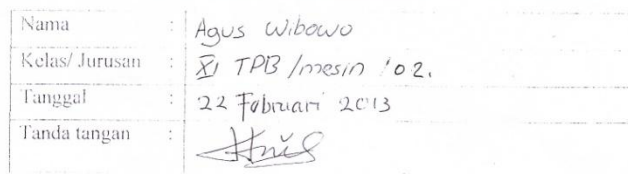 Nama : Agus Wibowo
Kelas/ Jurusan : XI TPB /mesin '02.
Tanggal : 22 Februari 2013
Tanda tangan :